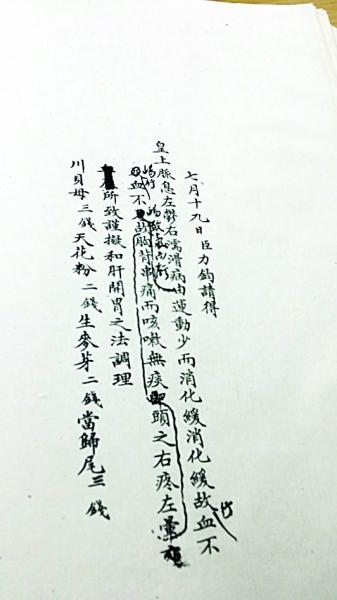 七月十九日臣力鈞請得
皇上脈息左鬱右濡滑病由運動少而消化緩消化緩故血不行
血不故胸背串痛而咳嗽無痰即頭之右疼左暈
所致謹擬和肝開胃之法調理
川貝母三錢天花粉二錢生麥芽二錢當歸尾三錢